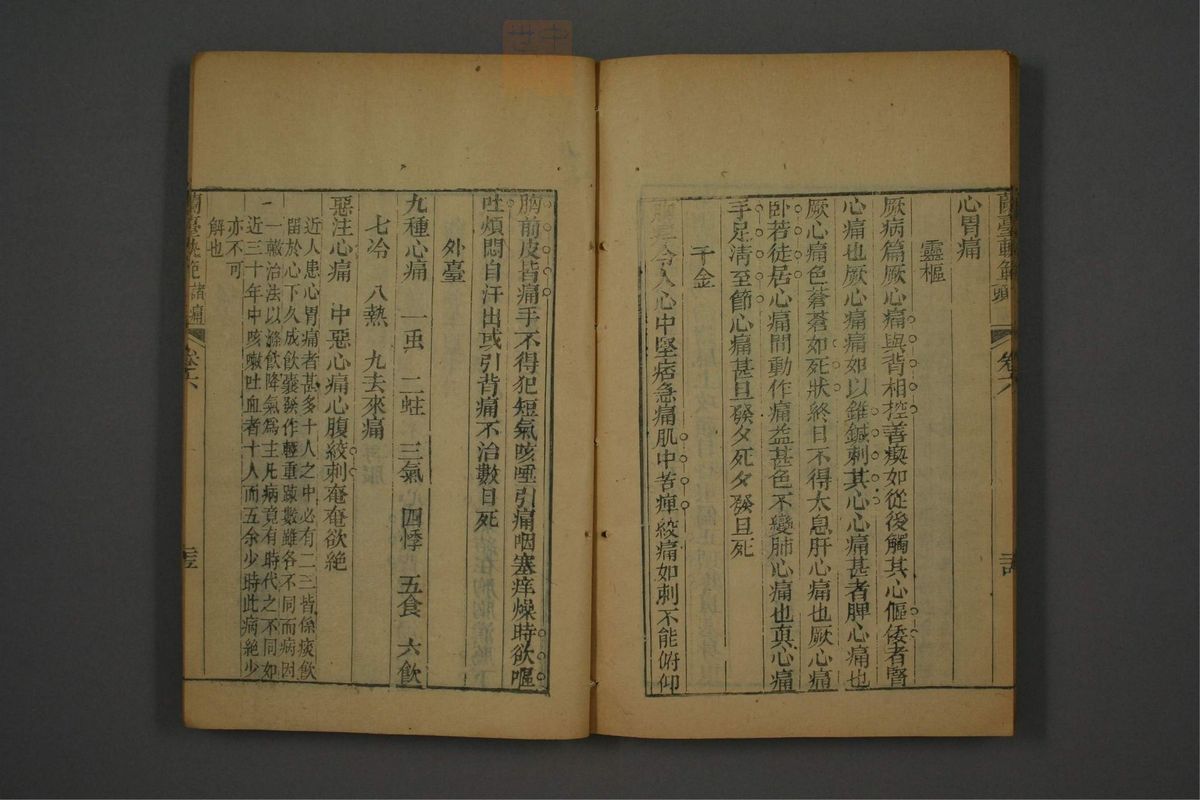 心胃痛
靈樞
厥病篇厥心痛與背相控善瘈如從後觸其心傴僂者腎
心痛也厥心痛痛如以錐鍼刺其心心痛甚者脾心痛也
厥心痛色蒼蒼如死狀終日不得太息肝心痛也厥心痛
卧若徒居心痛間動作痛益甚色不變肺心痛也真心痛
手足清至節心痛甚旦發夕死夕發旦死
千金
令人心中堅痞急痛肌中苦痺絞痛如刺不能俯仰
胸前皮皆痛手不得犯短氣咳唾引痛咽塞痒燥時欲嘔
吐煩悶自汗出或引背痛不治數日死
外臺
九種心痛 一虫 二蛀 三氣 四悸 五食 六飲
七冷 八熱 九去來痛
惡注心痛 中惡心痛心腹絞刺奄奄欲絶
近人患心胃痛者甚多十人之中必有二三皆係痰飲
留於心下久成飲囊發作輕重疎數雖各不同而病因
一轍治法以滌飲降氣為主凡病竟有時代之不同如
近三十年中咳嗽吐血者十人而五余少時此病絶少
亦不可
解也
卷六